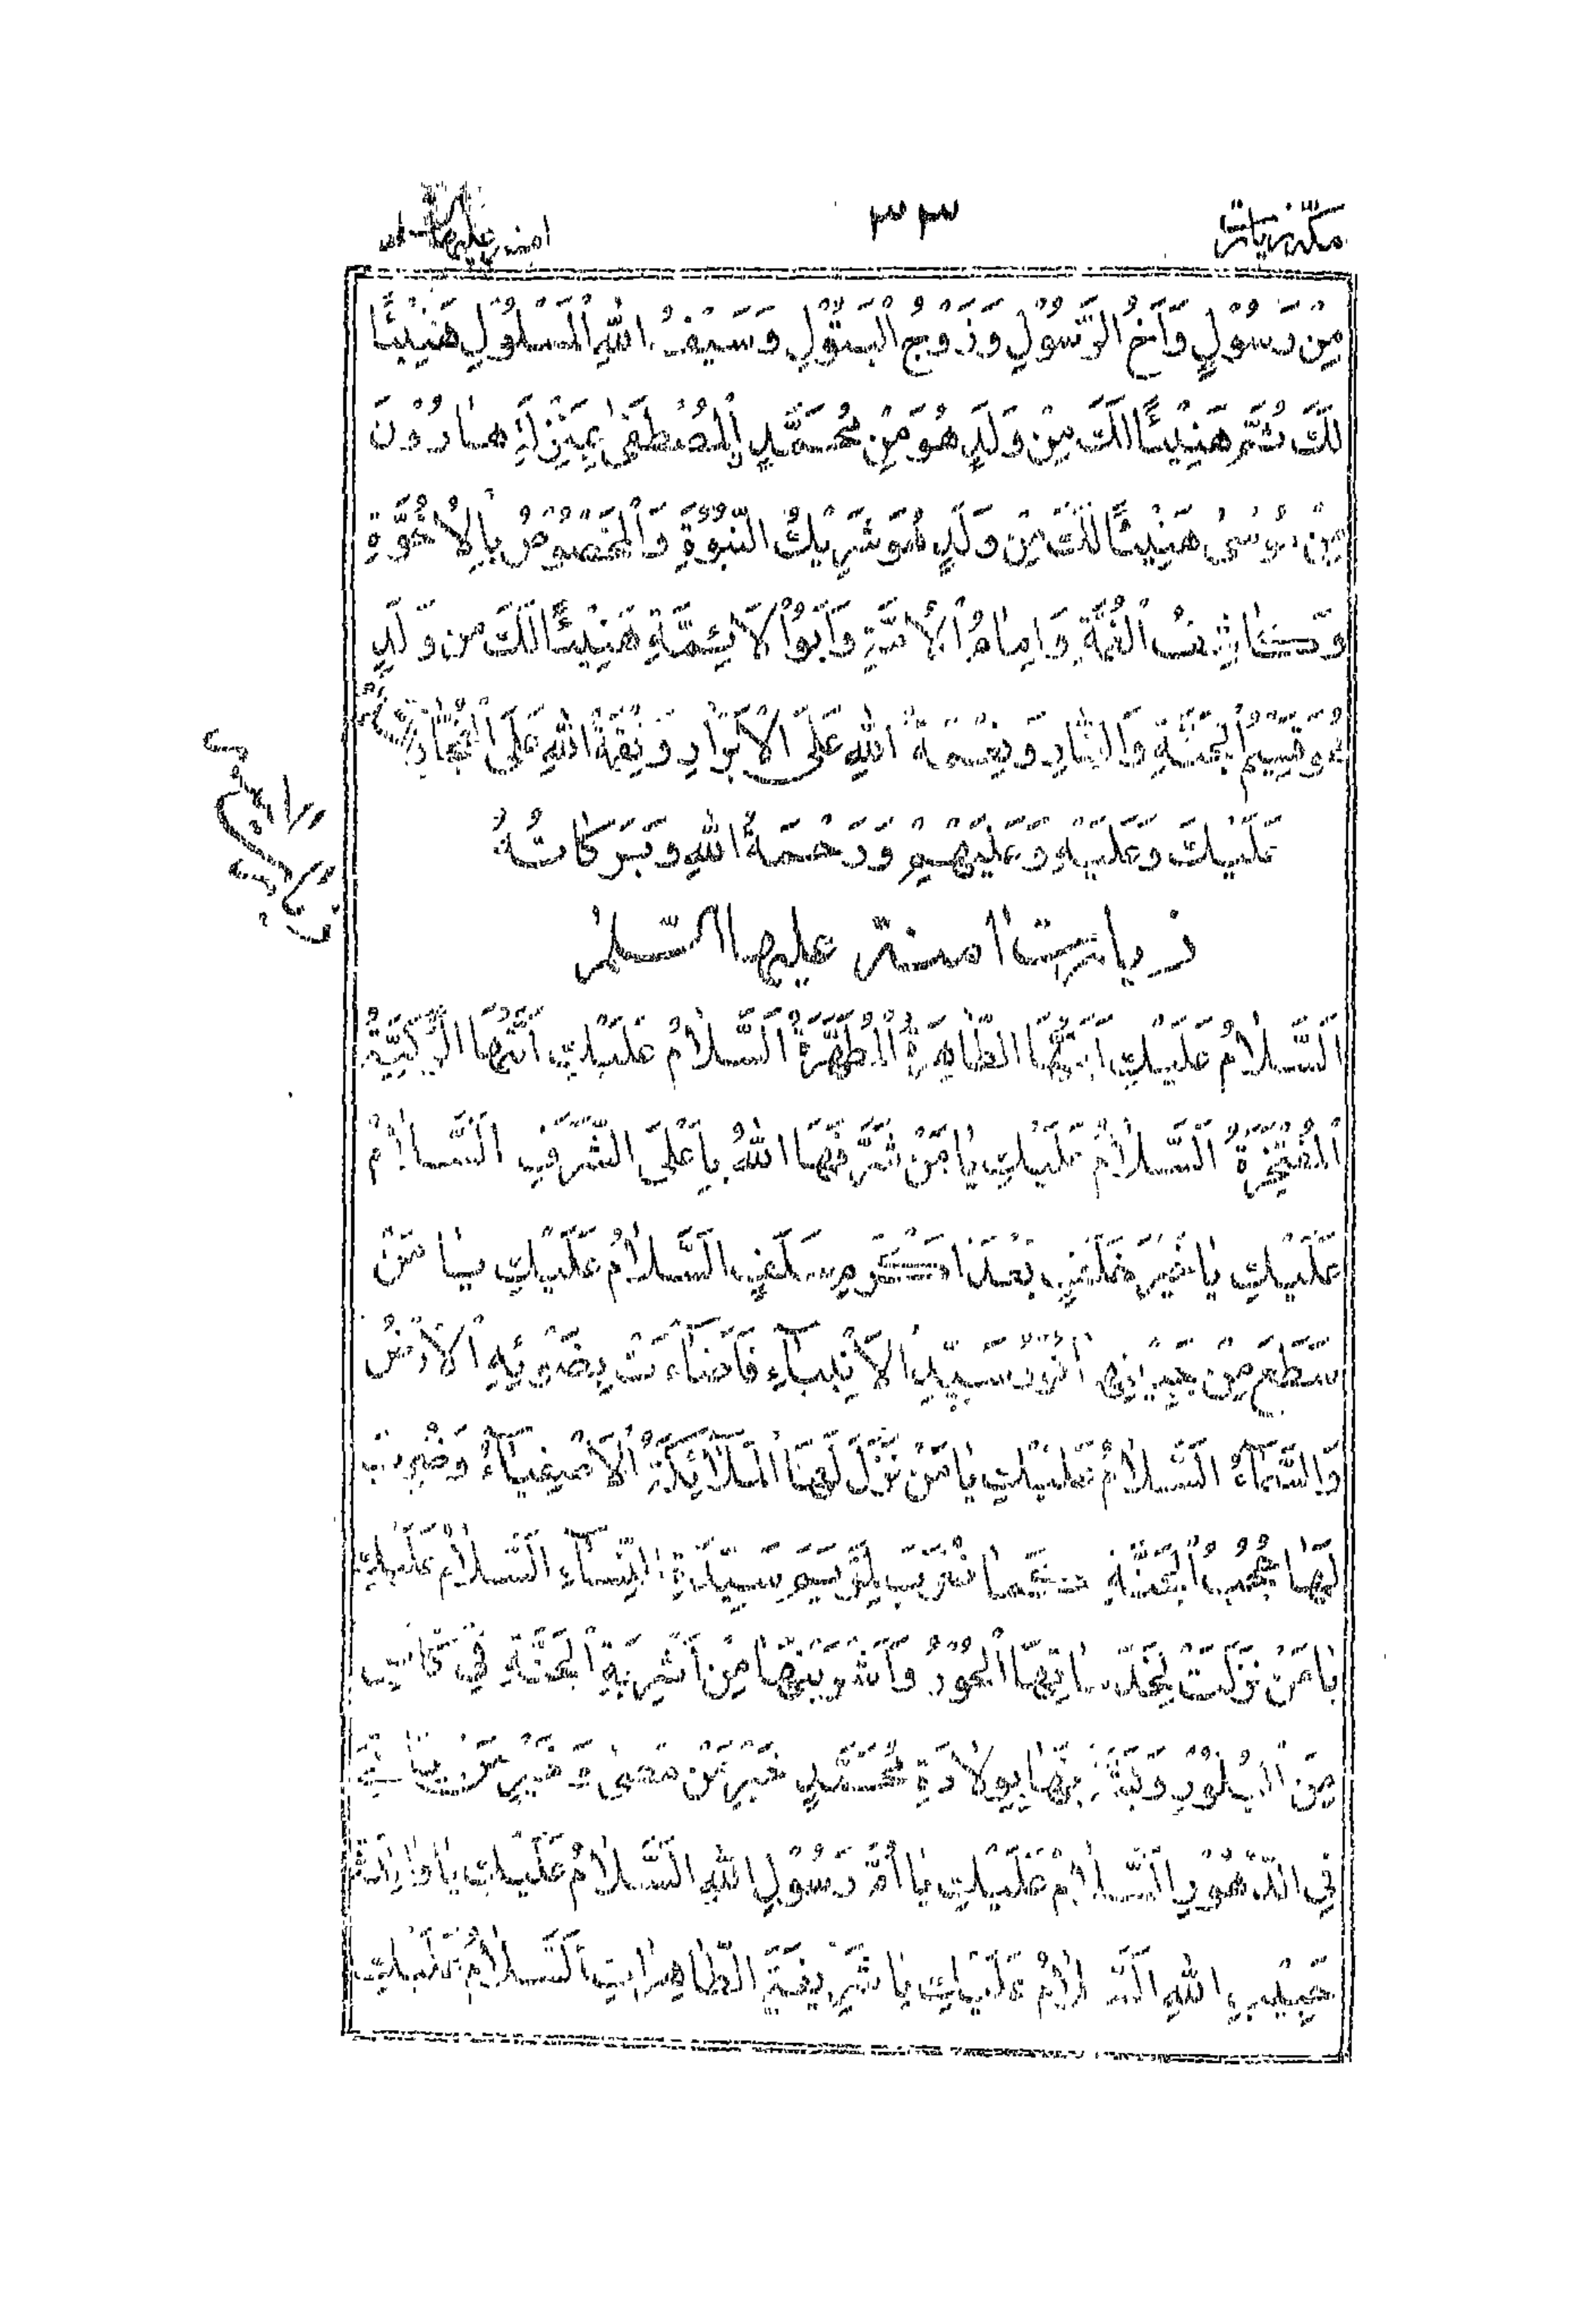 مکہ زیارت
٣٣
مِنْ رَسُوْلٍ وَاَخُ الرَّسُوْلِ وَزَوْجُ الْبَتُوْلِ وَسَيْفُ اللّٰهِ الْمَسْلُوْلِ هَنِيْئًا
لَكَ ثُمَّ هَنِيْئًا لَكَ مِنْ وَلَدٍ هُوَ مِنْ مُحَمَّدٍ اِلْمُصْطَفٰى بِمَنْزِلَةِ هٰارُوْنَ
مِنْ مُوْسٰى هَنِيْئًا لَكَ مِنْ وَلَدٍ هُوَ شَرِيْكُ النُّبُوَّةِ وَالْمَخْصُوْصُ بِالْاُخُوَّةِ
وَكَاشِفُ الْغُمَّةِ وَاِمَامُ الْأُمَّةِ وَاَبُوْا لَائِمَّةِ هَنِيْئًا لَكَ مِنْ وَلَدٍ
هُوَ قَسِيْمُ الْجَنَّةِ وَالنَّارِ وَنِعْمَةُ اللّٰهِ عَلَى الْاَبْرَارِ وَنِقْمَةُ اللّٰهِ عَلَى الْفُجَّارِ اَلسَّلَامُ
عَلَيْكَ وَعَلَيْهِ وَعَلَيْهِمْ وَرَحْمَةُ اللّٰهِ وَبَرَكَاتُهُ
زیارت اٰمنة علیها السّلٰمُ
اَلسَّلَامُ عَلَيْكِ اَيَّتُهَا الطَّاهِرَةُ الْمُطَهَّرَةُ اَلسَّلَامُ عَلَيْكِ اَيَّتُهَا الزَّكِيَّةُ
الْمُفْتَخِرَةُ اَلسَّلَامُ عَلَيْكِ يَا مَنْ شَرَّفَهَا اللّٰهُ بِاَعْلَى الشَّرَفِ اَلسَّلَامُ
عَلَيْكِ يَا خَيْرَ خَلَفٍ بَعْدَ اَكْرَمِ سَلَفٍ اَلسَّلَامُ عَلَيْكِ يَا مَنْ
سَطَعَ مِنْ جَبِيْنِهَا نُوْرُ سَيِّدِ الْاَنْبِيَاءِ فَاَضَاءَتْ بِضَوْئِهِ الْاَرْضُ
وَالسَّمَاءُ اَلسَّلَامُ عَلَيْكِ يَا مَنْ نَزَلَ لَهَا الْمَلَائِكَةُ الْاَصْفِيَاءُ وَضُرِبَتْ
لَهَا حُجُبُ الْجَنَّةِ كَمَا ضُرِبَ لِمَرْيَمَ سَيِّدَةِ النِّسَاءِ اَلسَّلَامُ عَلَيْكِ
يَا مَنْ نَزَلَتْ لِخِدْمَتِهَا الْحُوْرُ وَاَشْرَبْنَهَا مِنْ اَشْرِبَةِ الْجَنَّةِ فِيْ كَاْسٍ
مِنَ الْبُلُوْرِ وَبَشَّرْنَهَا بِوِلَادَةِ مُحَمَّدٍ خَيْرِ مَنْ مَضٰى وَخَيْرِ مَنْ يَاْتِيْ
فِي الدُّهُوْرِ اَلسَّلَامُ عَلَيْكِ يَا اُمَّ رَسُوْلِ اللّٰهِ اَلسَّلَامُ عَلَيْكِ يَا وَالِدَةَ
حَبِيْبِ اللّٰهِ اَلسَّلَامُ عَلَيْكِ يَا شَرِيْفَةَ الطَّاهِرَاتِ اَلسَّلَامُ عَلَيْكِ